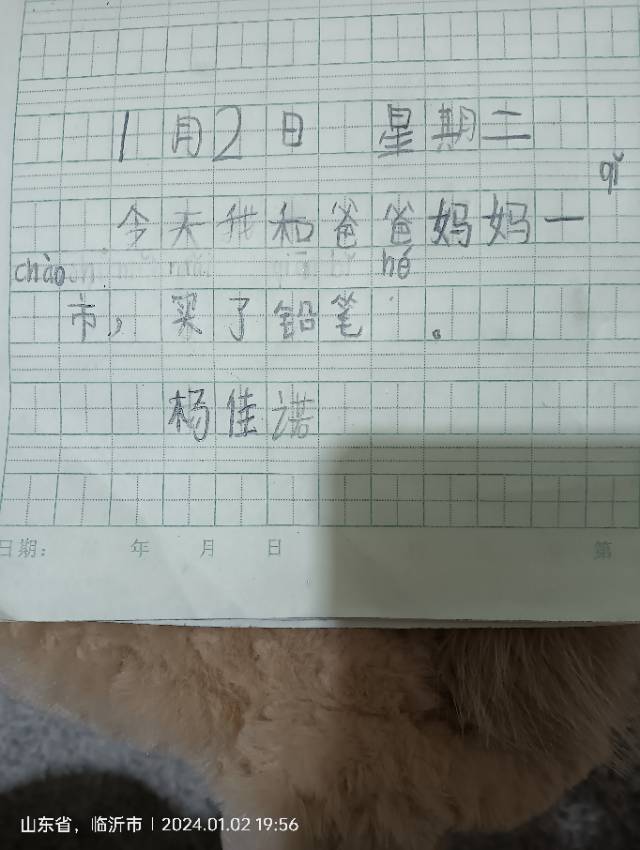 1月2日 星期二
qǐ
今天我和爸爸妈妈一
chāo hé
市，买了铅笔 。
杨佳诺
日期： 年 月 日 第
山东省，临沂市 | 2024.01.02 19:56